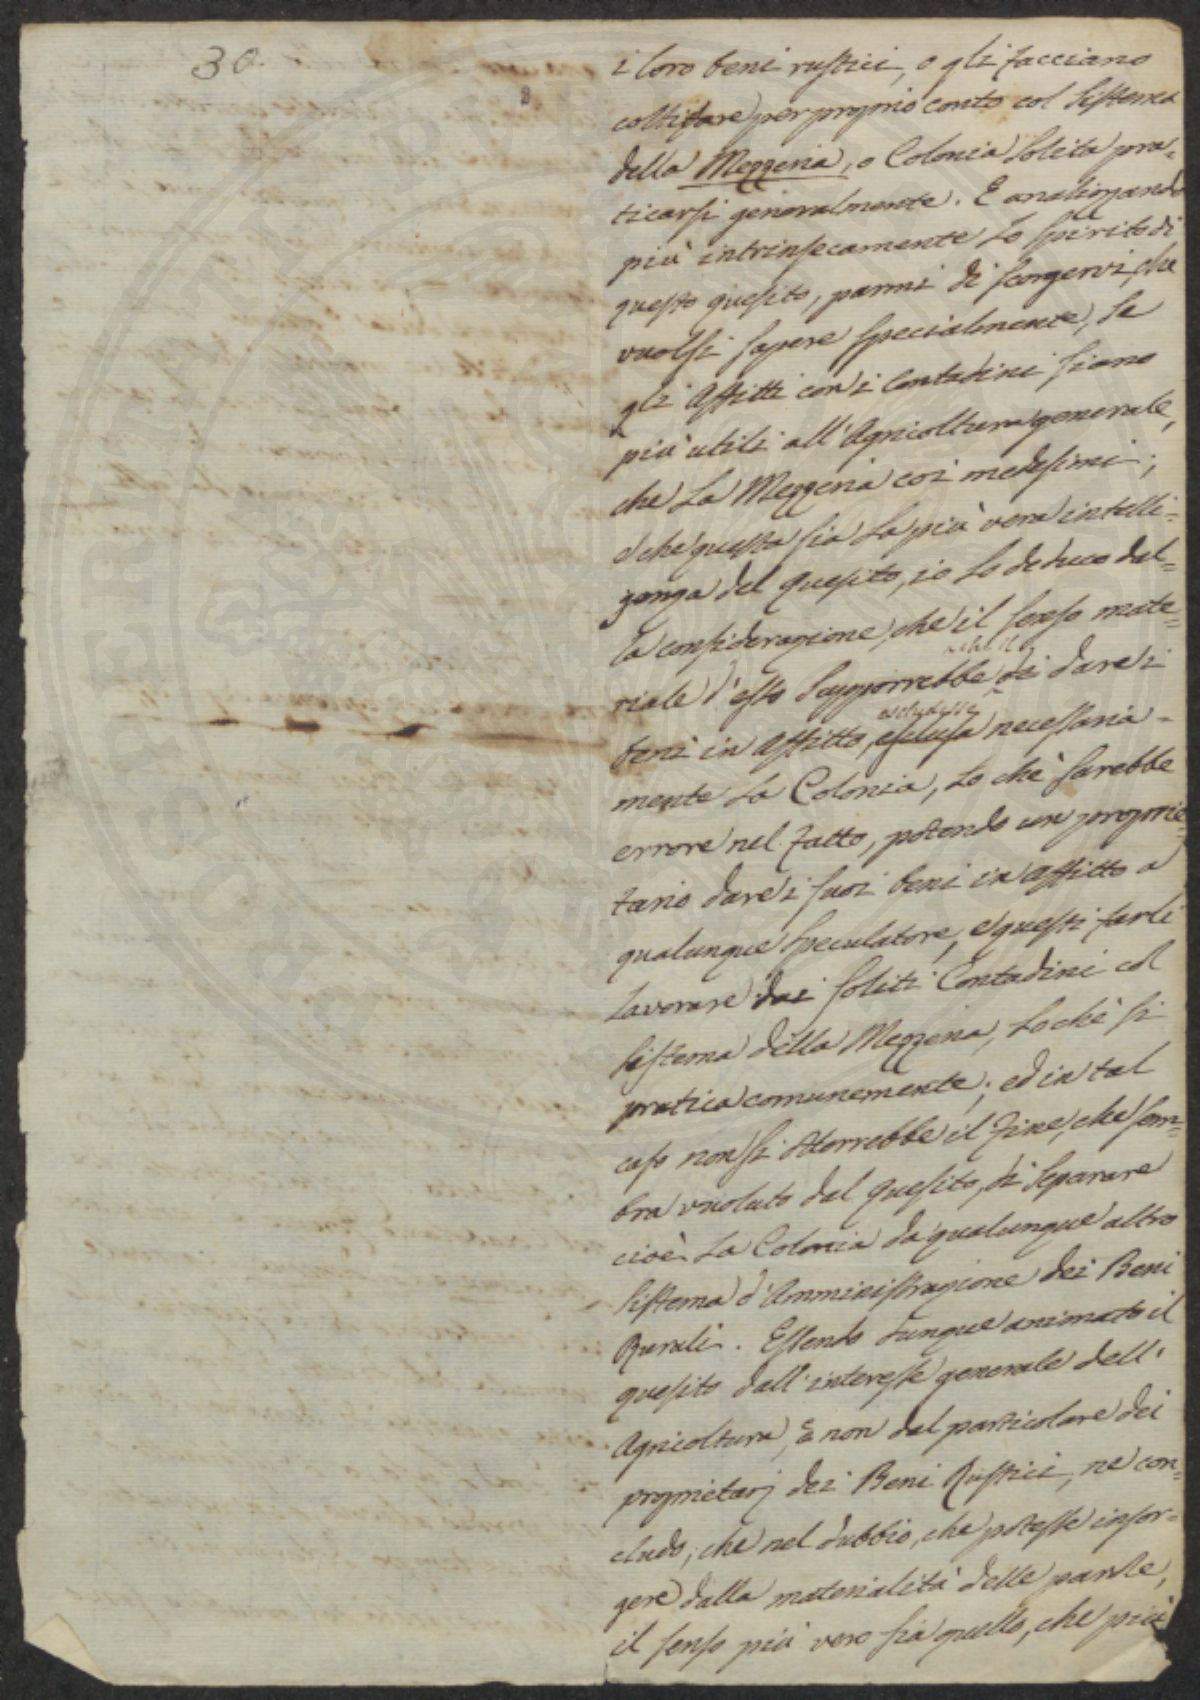 30.
i loro beni rustici, o gli facciano
coltivare per proprio conto col sistema
della Mezzeria, o Colonia solita pra=
ticarsi generalmente. E analizzando
più intrinsecamente lo spirito di
questo quesito, parmi di scorgervi, che
vuolsi sapere specialmente, se
gli Affitti con i Contadini siano
più utili all'Agricoltura generale,
che la Mezzeria coi medesimi;
e che questa sia la più vera intelli=
genza del Quesito, io lo deduco dal=
la considerazione, che il senso mate=
riale d'esso supporrebbe di dare i
escludesse
beni in Affitto, esclusa necessaria=
mente la Colonia, lo che sarebbe
errore nel fatto, potendo un proprie=
tario dare i suoi beni in affitto a
qualunque speculatore, e questi farli
lavorare dai soliti Contadini col
sistema della Mezzeria, lo chè si
pratica comunemente; ed in tal
caso non si otterrebbe il fine, che sem=
bra vuoluto dal Quesito, di separare
cioè la Colonia da qualunque altro
sistema d'Amministrazione dei Beni
Rurali. Essendo dunque animato il
quesito dall'interesse generale dell'
Agricoltura, e non dal particolare dei
proprietarj dei Beni Rustici, ne con=
cludo, che nel dubbio, che potesse insor=
gere dalla materialità delle parole,
il senso più vero sia quello, che più